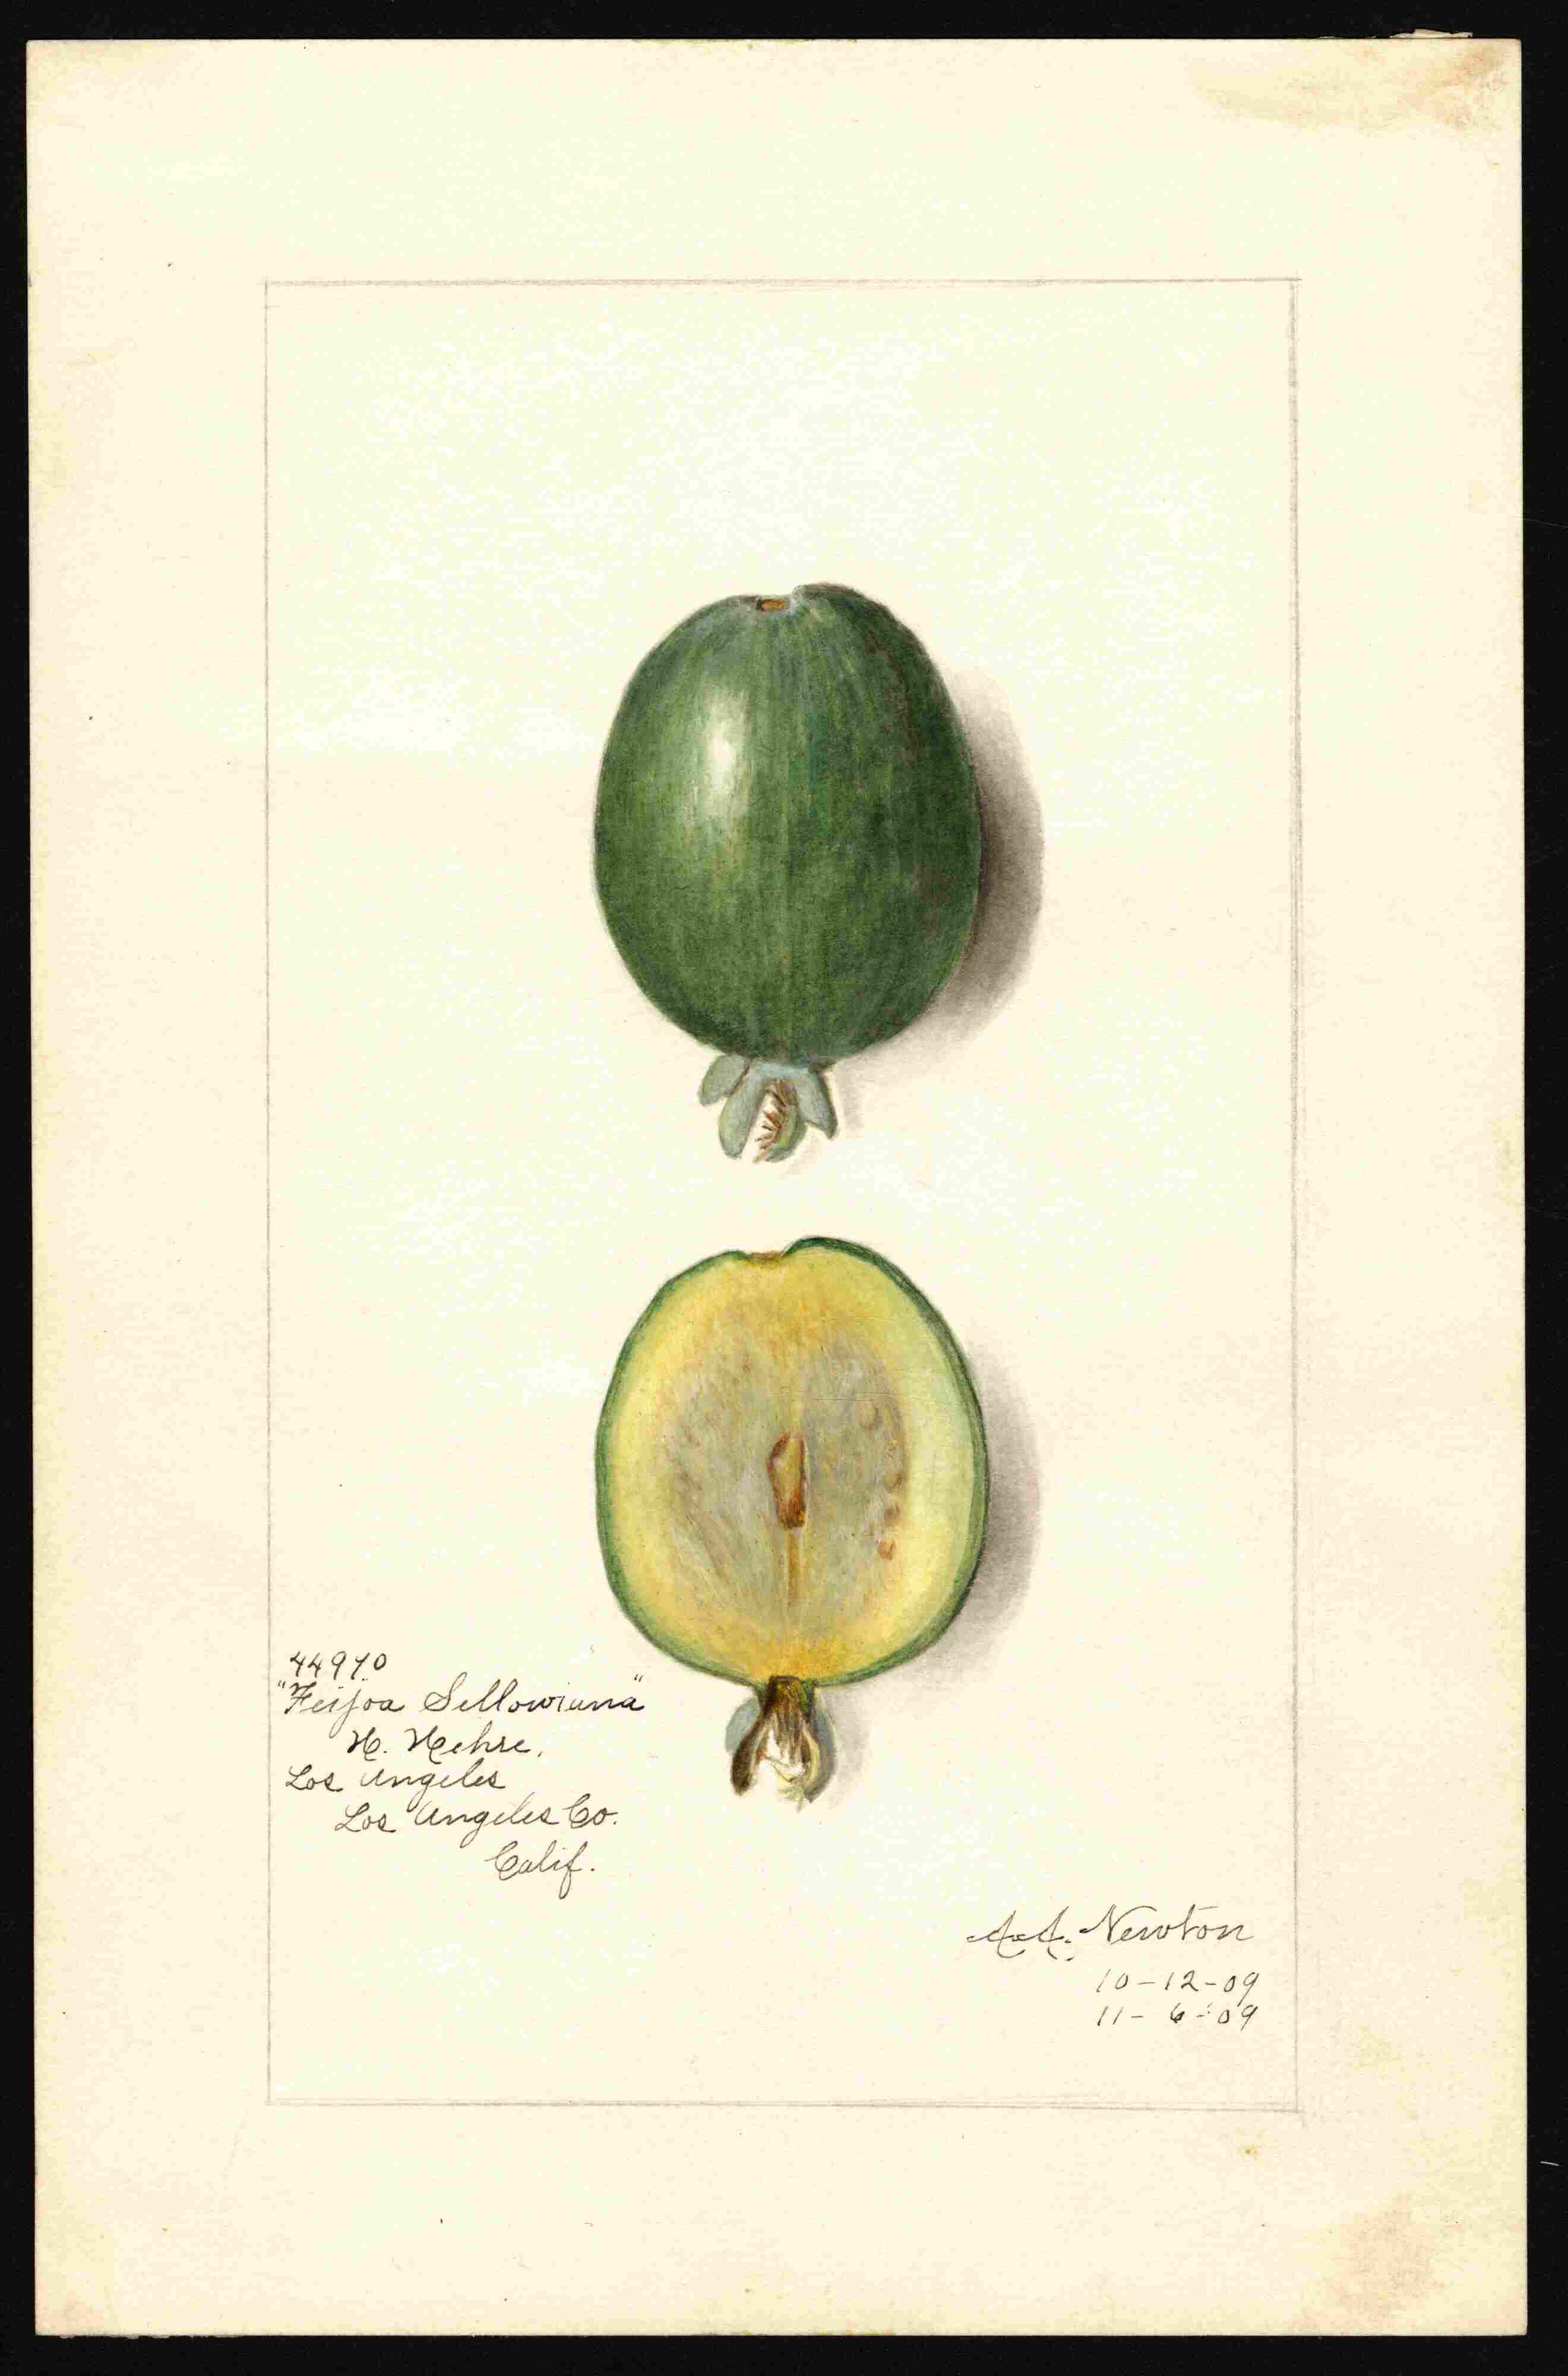 44970
"Feijoa Sellowiana"
H. Hehre,
Los Angeles
Los Angeles Co.
Calif.
A.A. Newton
10-12-09
11-6-09